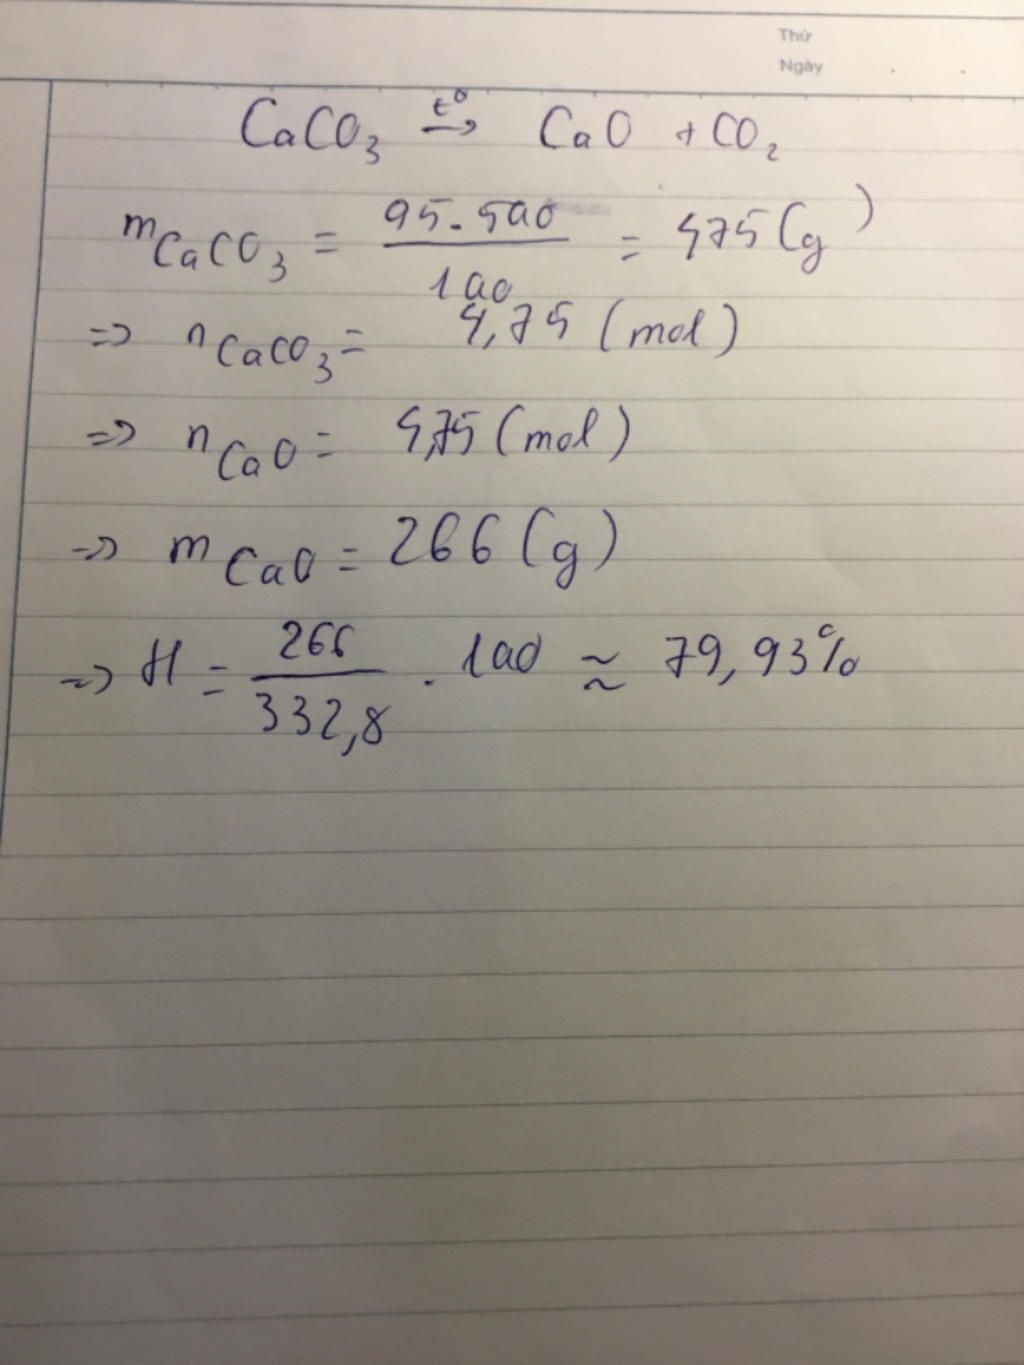 Thứ
Ngày
CaCO₃ →(t°) CaO + CO₂
mCaCO₃ = 95.500/100 = 475 (g)
=> nCaCO₃ = 4,75 (mol)
=> nCaO = 4,75 (mol)
=> mCaO = 266 (g)
=> H = 266/332,8 . 100 ≈ 79,93%